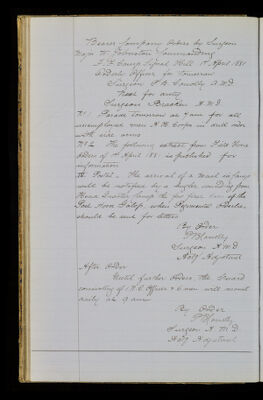 Bearer Company Orders by Surgeon
Major W. Johnston Commanding
T. F. Camp Signal Hill 1st April 1881
Orderly Officer for Tomorrow
Surgeon P. B. A.M.D.
Next for duty
Surgeon A.M.D.
No 1 Parade tomorrow at 7 am for all
unemployed men A.H. Corps in order
with side arms
No 2 The following extract from Field Force
Orders of 1st April 1881 is published for
information
The arrival of a mail in camp
will be notified by a bugler sounding from
Head Quarter Camp the first of the
Post Horn Galop, when Regimental Orderlies
should be sent for letters
By Order
Surgeon A.M.D.
Actg Adjutant
After Order
Until further orders, the Guard
consisting of 1 N.C. Officer & 6 men will mount
daily at 9 am
By Order
Surgeon A.M.D.
Actg Adjutant